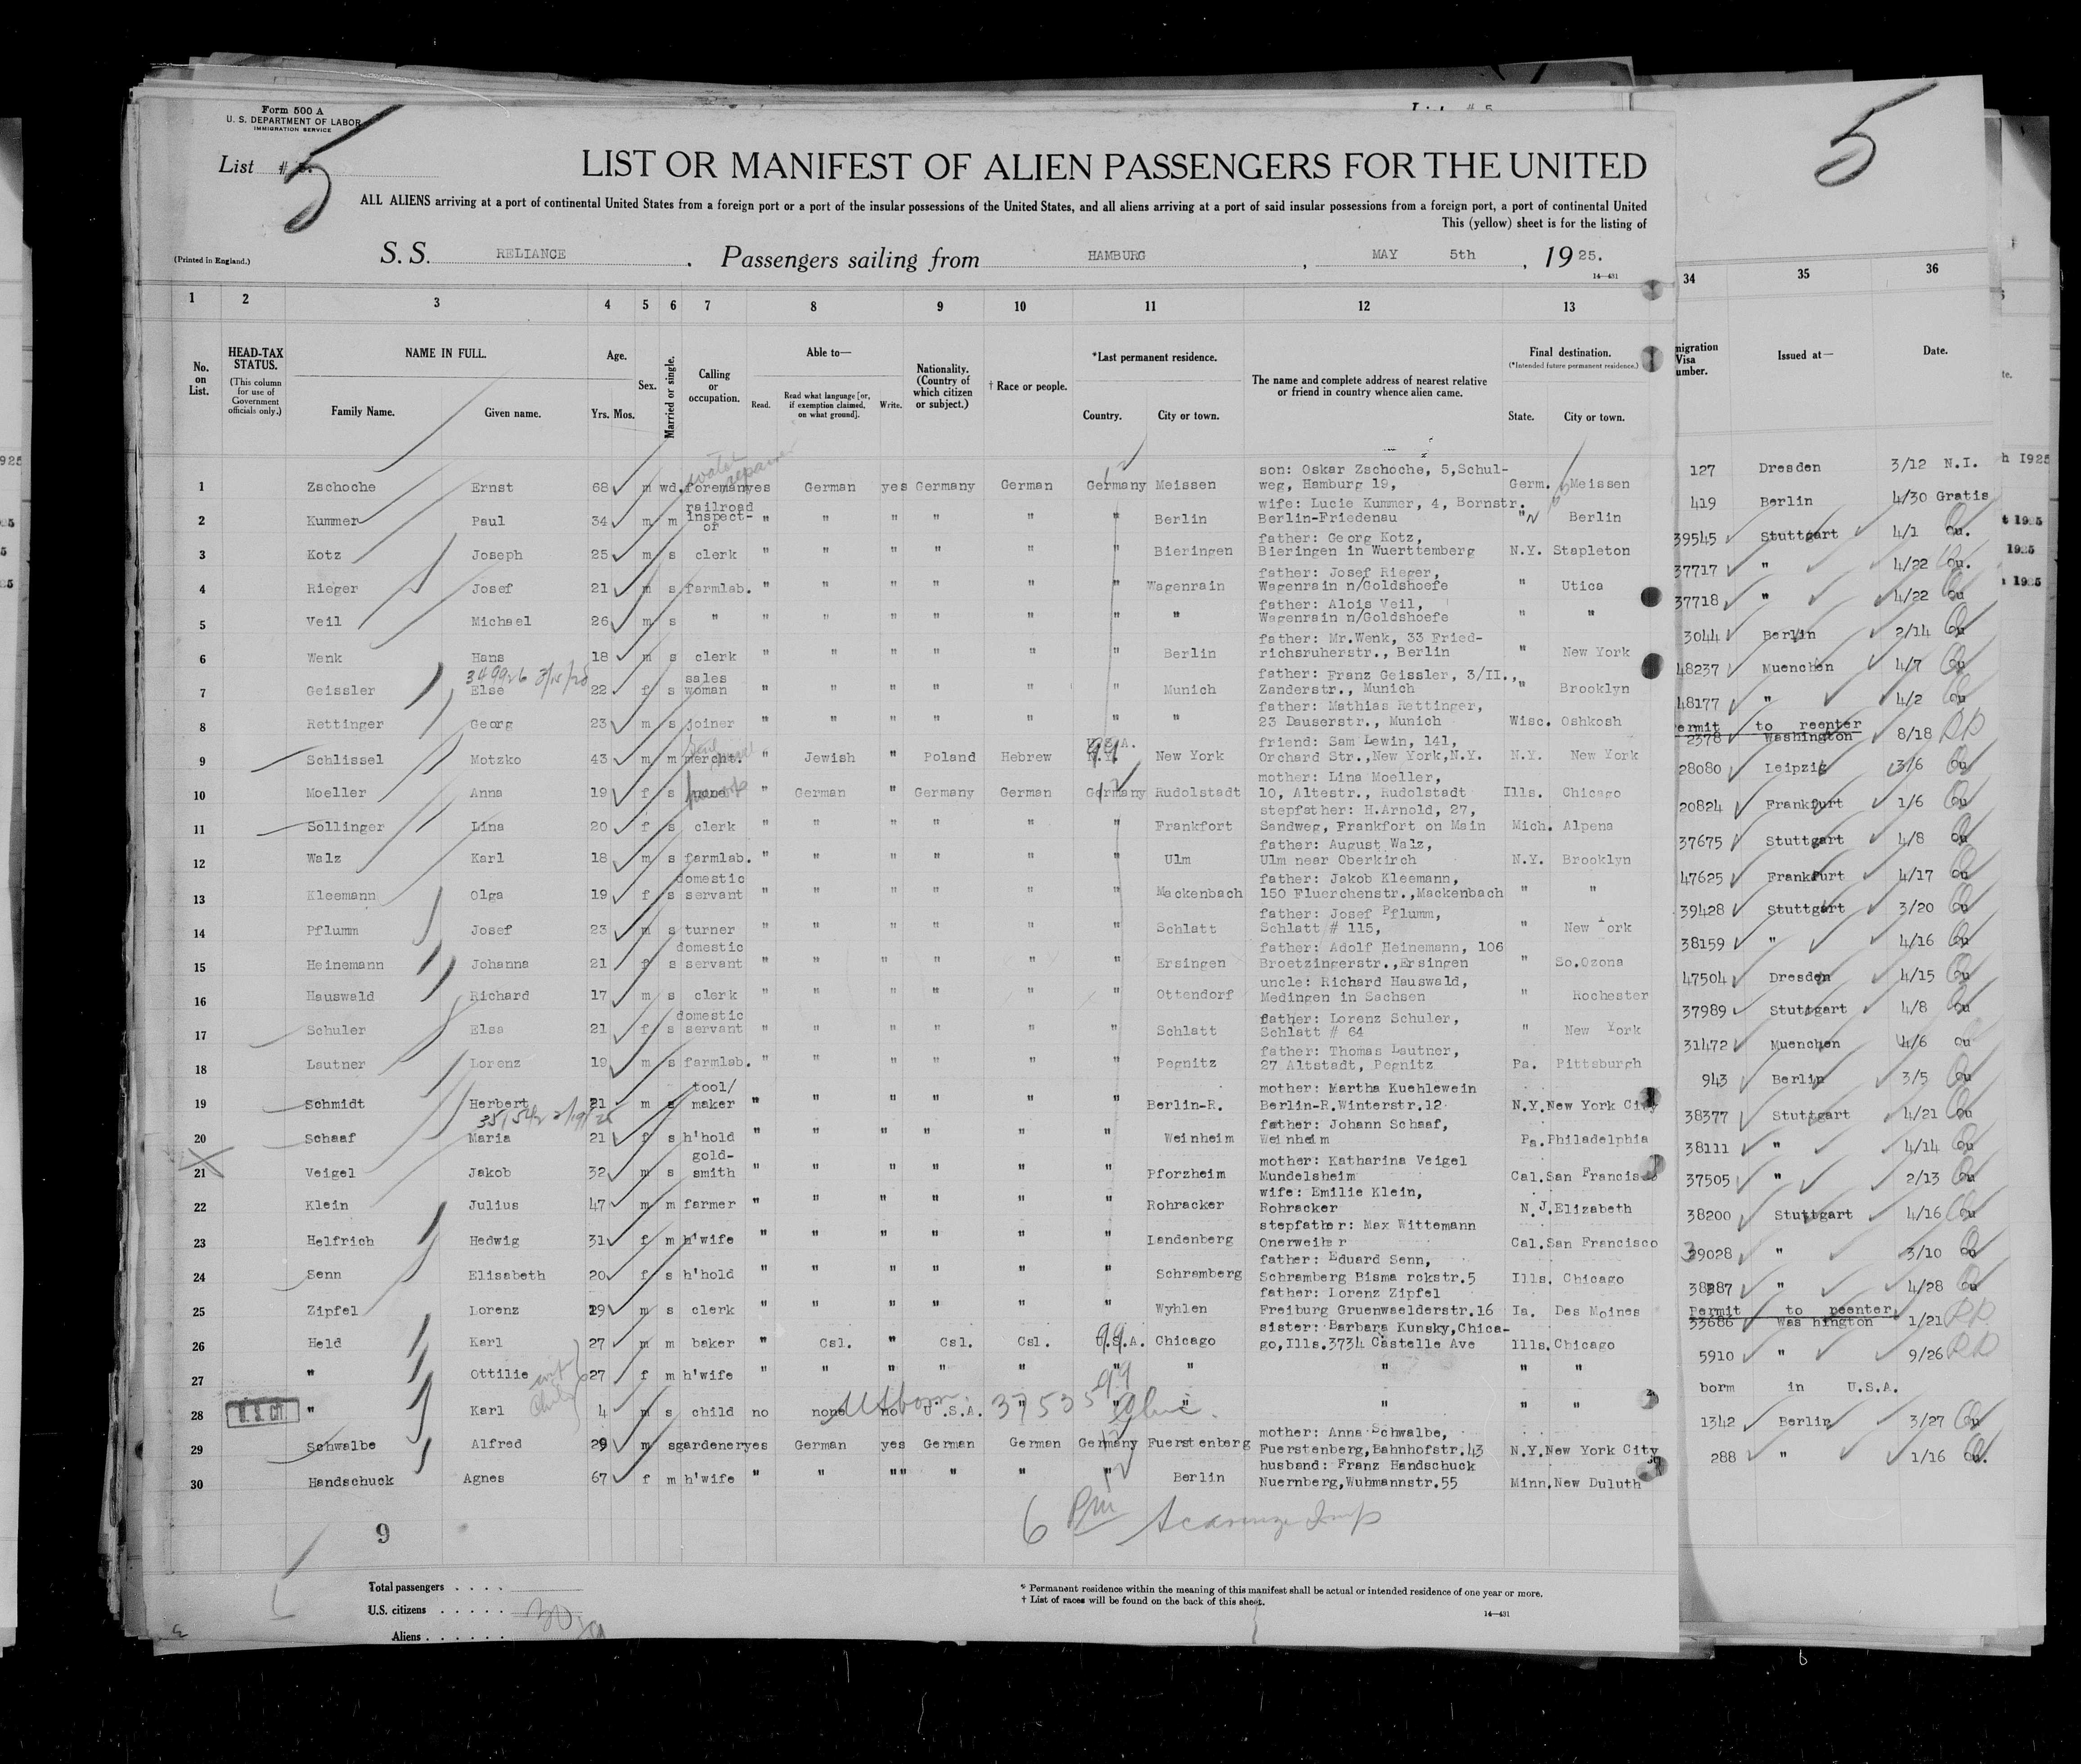 Form 500 A
U. S. DEPARTMENT OF LABOR
IMMIGRATION SERVICE
List # 5.
5
5
LIST OR MANIFEST OF ALIEN PASSENGERS FOR THE UNITED
ALL ALIENS arriving at a port of continental United States from a foreign port or a port of the insular possessions of the United States, and all aliens arriving at a port of said insular possessions from a foreign port, a port of continental United
This (yellow) sheet is for the listing of
(Printed in England.)
S. S. RELIANCE . Passengers sailing from HAMBURG , MAY 5th , 1925.
14—431
1 2 3 4 5 6 7 8 9 10 11 12 13 34 35 36
No. on List.
HEAD-TAX STATUS.
(This column for use of Government officials only.)
NAME IN FULL.
Family Name. Given name.
Age.
Yrs. Mos.
Sex.
Married or single.
Calling or occupation.
Able to—
Read. Read what language [or, if exemption claimed, on what ground]. Write.
Nationality. (Country of which citizen or subject.)
† Race or people.
*Last permanent residence.
Country. City or town.
The name and complete address of nearest relative or friend in country whence alien came.
Final destination.
(*Intended future permanent residence.)
State. City or town.
migration Visa umber.
Issued at—
Date.
1 Zschoche Ernst 68 m wd. foreman yes German yes Germany German Germany Meissen son: Oskar Zschoche, 5,Schul-weg, Hamburg 19, Germ. Meissen 127 Dresden 3/12 N.I.
2 Kummer Paul 34 m m railroad inspect-or " " " " " " Berlin wife: Lucie Kummer, 4, Bornstr. Berlin-Friedenau " Berlin 419 Berlin 4/30 Gratis
3 Kotz Joseph 25 m s clerk " " " " " " Bieringen father: Georg Kotz, Bieringen in Wuerttemberg N.Y. Stapleton 39545 Stuttgart 4/1 Qu.
4 Rieger Josef 21 m s farmlab. " " " " " " Wagenrain father: Josef Rieger, Wagenrain n/Goldshoefe " Utica 37717 " 4/22 Qu.
5 Veil Michael 26 m s " " " " " " " " father: Alois Veil, Wagenrain n/Goldshoefe " " 37718 " 4/22 Qu
6 Wenk Hans 18 m s clerk " " " " " " Berlin father: Mr.Wenk, 33 Fried-richsruherstr., Berlin " New York 3044 Berlin 2/14 Qu
7 Geissler Else 22 f s sales woman " " " " " " Munich father: Franz Geissler, 3/II., Zanderstr., Munich " Brooklyn 48237 Muenchen 4/7 Qu
8 Rettinger Georg 23 m s joiner " " " " " " " father: Mathias Rettinger, 23 Dauserstr., Munich Wisc. Oshkosh 48177 " 4/2 Qu
9 Schlissel Motzko 43 m m mercht. " Jewish " Poland Hebrew New York friend: Sam Lewin, 141, Orchard Str.,New York,N.Y. N.Y. New York ermit to reenter 2378 Washington 8/18
10 Moeller Anna 19 f s none " German " Germany German Germany Rudolstadt mother: Lina Moeller, 10, Altestr., Rudolstadt Ills. Chicago 28080 Leipzig 3/6 Qu
11 Sollinger Lina 20 f s clerk " " " " " " Frankfort stepfather: H.Arnold, 27, Sandweg, Frankfort on Main Mich. Alpena 20824 Frankfurt 1/6 Qu
12 Walz Karl 18 m s farmlab. " " " " " " Ulm father: August Walz, Ulm near Oberkirch N.Y. Brooklyn 37675 Stuttgart 4/8 Qu
13 Kleemann Olga 19 f s domestic servant " " " " " " Mackenbach father: Jakob Kleemann, 150 Fluerchenstr.,Mackenbach " " 47625 Frankfurt 4/17 Qu
14 Pflumm Josef 23 m s turner " " " " " " Schlatt father: Josef Pflumm, Schlatt # 115, " New York 39428 Stuttgart 3/20 Qu
15 Heinemann Johanna 21 f s domestic servant " " " " " " Ersingen father: Adolf Heinemann, 106 Broetzingerstr.,Ersingen " So.Ozona 38159 " 4/16 Qu
16 Hauswald Richard 17 m s clerk " " " " " " Ottendorf uncle: Richard Hauswald, Medingen in Sachsen " Rochester 47504 Dresden 4/15 Qu
17 Schuler Elsa 21 f s domestic servant " " " " " " Schlatt father: Lorenz Schuler, Schlatt # 64 " New York 37989 Stuttgart 4/8 Qu
18 Lautner Lorenz 19 m s farmlab. " " " " " " Pegnitz father: Thomas Lautner, 27 Altstadt, Pegnitz Pa. Pittsburgh 31472 Muenchen 4/6 Qu
19 Schmidt Herbert 21 m s tool/ maker " " " " " " Berlin-R. mother: Martha Kuehlewein Berlin-R.Winterstr.12 N.Y.New York City 943 Berlin 3/5 Qu
20 Schaaf Maria 21 f s h'hold " " " " " " Weinheim father: Johann Schaaf, Weinheim Pa.Philadelphia 38377 Stuttgart 4/21 Qu
21 Veigel Jakob 32 m s gold-smith " " " " " " Pforzheim mother: Katharina Veigel Mundelsheim Cal.San Francisco 38111 " 4/14 Qu
22 Klein Julius 47 m m farmer " " " " " " Rohracker wife: Emilie Klein, Rohracker N.J.Elizabeth 37505 " 2/13 Qu
23 Helfrich Hedwig 31 f m h'wife " " " " " " Landenberg stepfather: Max Wittemann Onerweiher Cal.San Francisco 38200 Stuttgart 4/16 Qu
24 Senn Elisabeth 20 f s h'hold " " " " " " Schramberg father: Eduard Senn, Schramberg Bisma rckstr.5 Ills. Chicago 39028 " 3/10 Qu
25 Zipfel Lorenz 29 m s clerk " " " " " " Wyhlen father: Lorenz Zipfel Freiburg Gruenwaelderstr.16 Ia. Des Moines " 4/28 Qu
26 Held Karl 27 m m baker " Csl. " Csl. Csl. U.S.A. Chicago sister: Barbara Kunsky,Chica-go,Ills.3734 Castelle Ave Ills.Chicago Permit to reenter 33686 Was hington 1/21
27 " Ottilie 27 f m h'wife " " " " " " " " " 5910 " 9/26
28 U. S. CIT. " Karl 4 m s child no none no U.S.A. " " " " " " born in U.S.A.
29 Schwalbe Alfred 29 m s gardener yes German yes German German Germany Fuerstenberg mother: Anna Schwalbe, Fuerstenberg,Bahnhofstr.43 N.Y.New York City 1342 Berlin 3/27 Qu
30 Handschuck Agnes 67 f m h'wife " " "" " " " Berlin husband: Franz Handschuck Nuernberg,Wuhmannstr.55 Minn.New Duluth 288 " 1/16 Qu.
9
Total passengers . . . .
U.S. citizens . . . . .
30
Aliens . . . . . .
* Permanent residence within the meaning of this manifest shall be actual or intended residence of one year or more.
† List of races will be found on the back of this sheet.
14—431